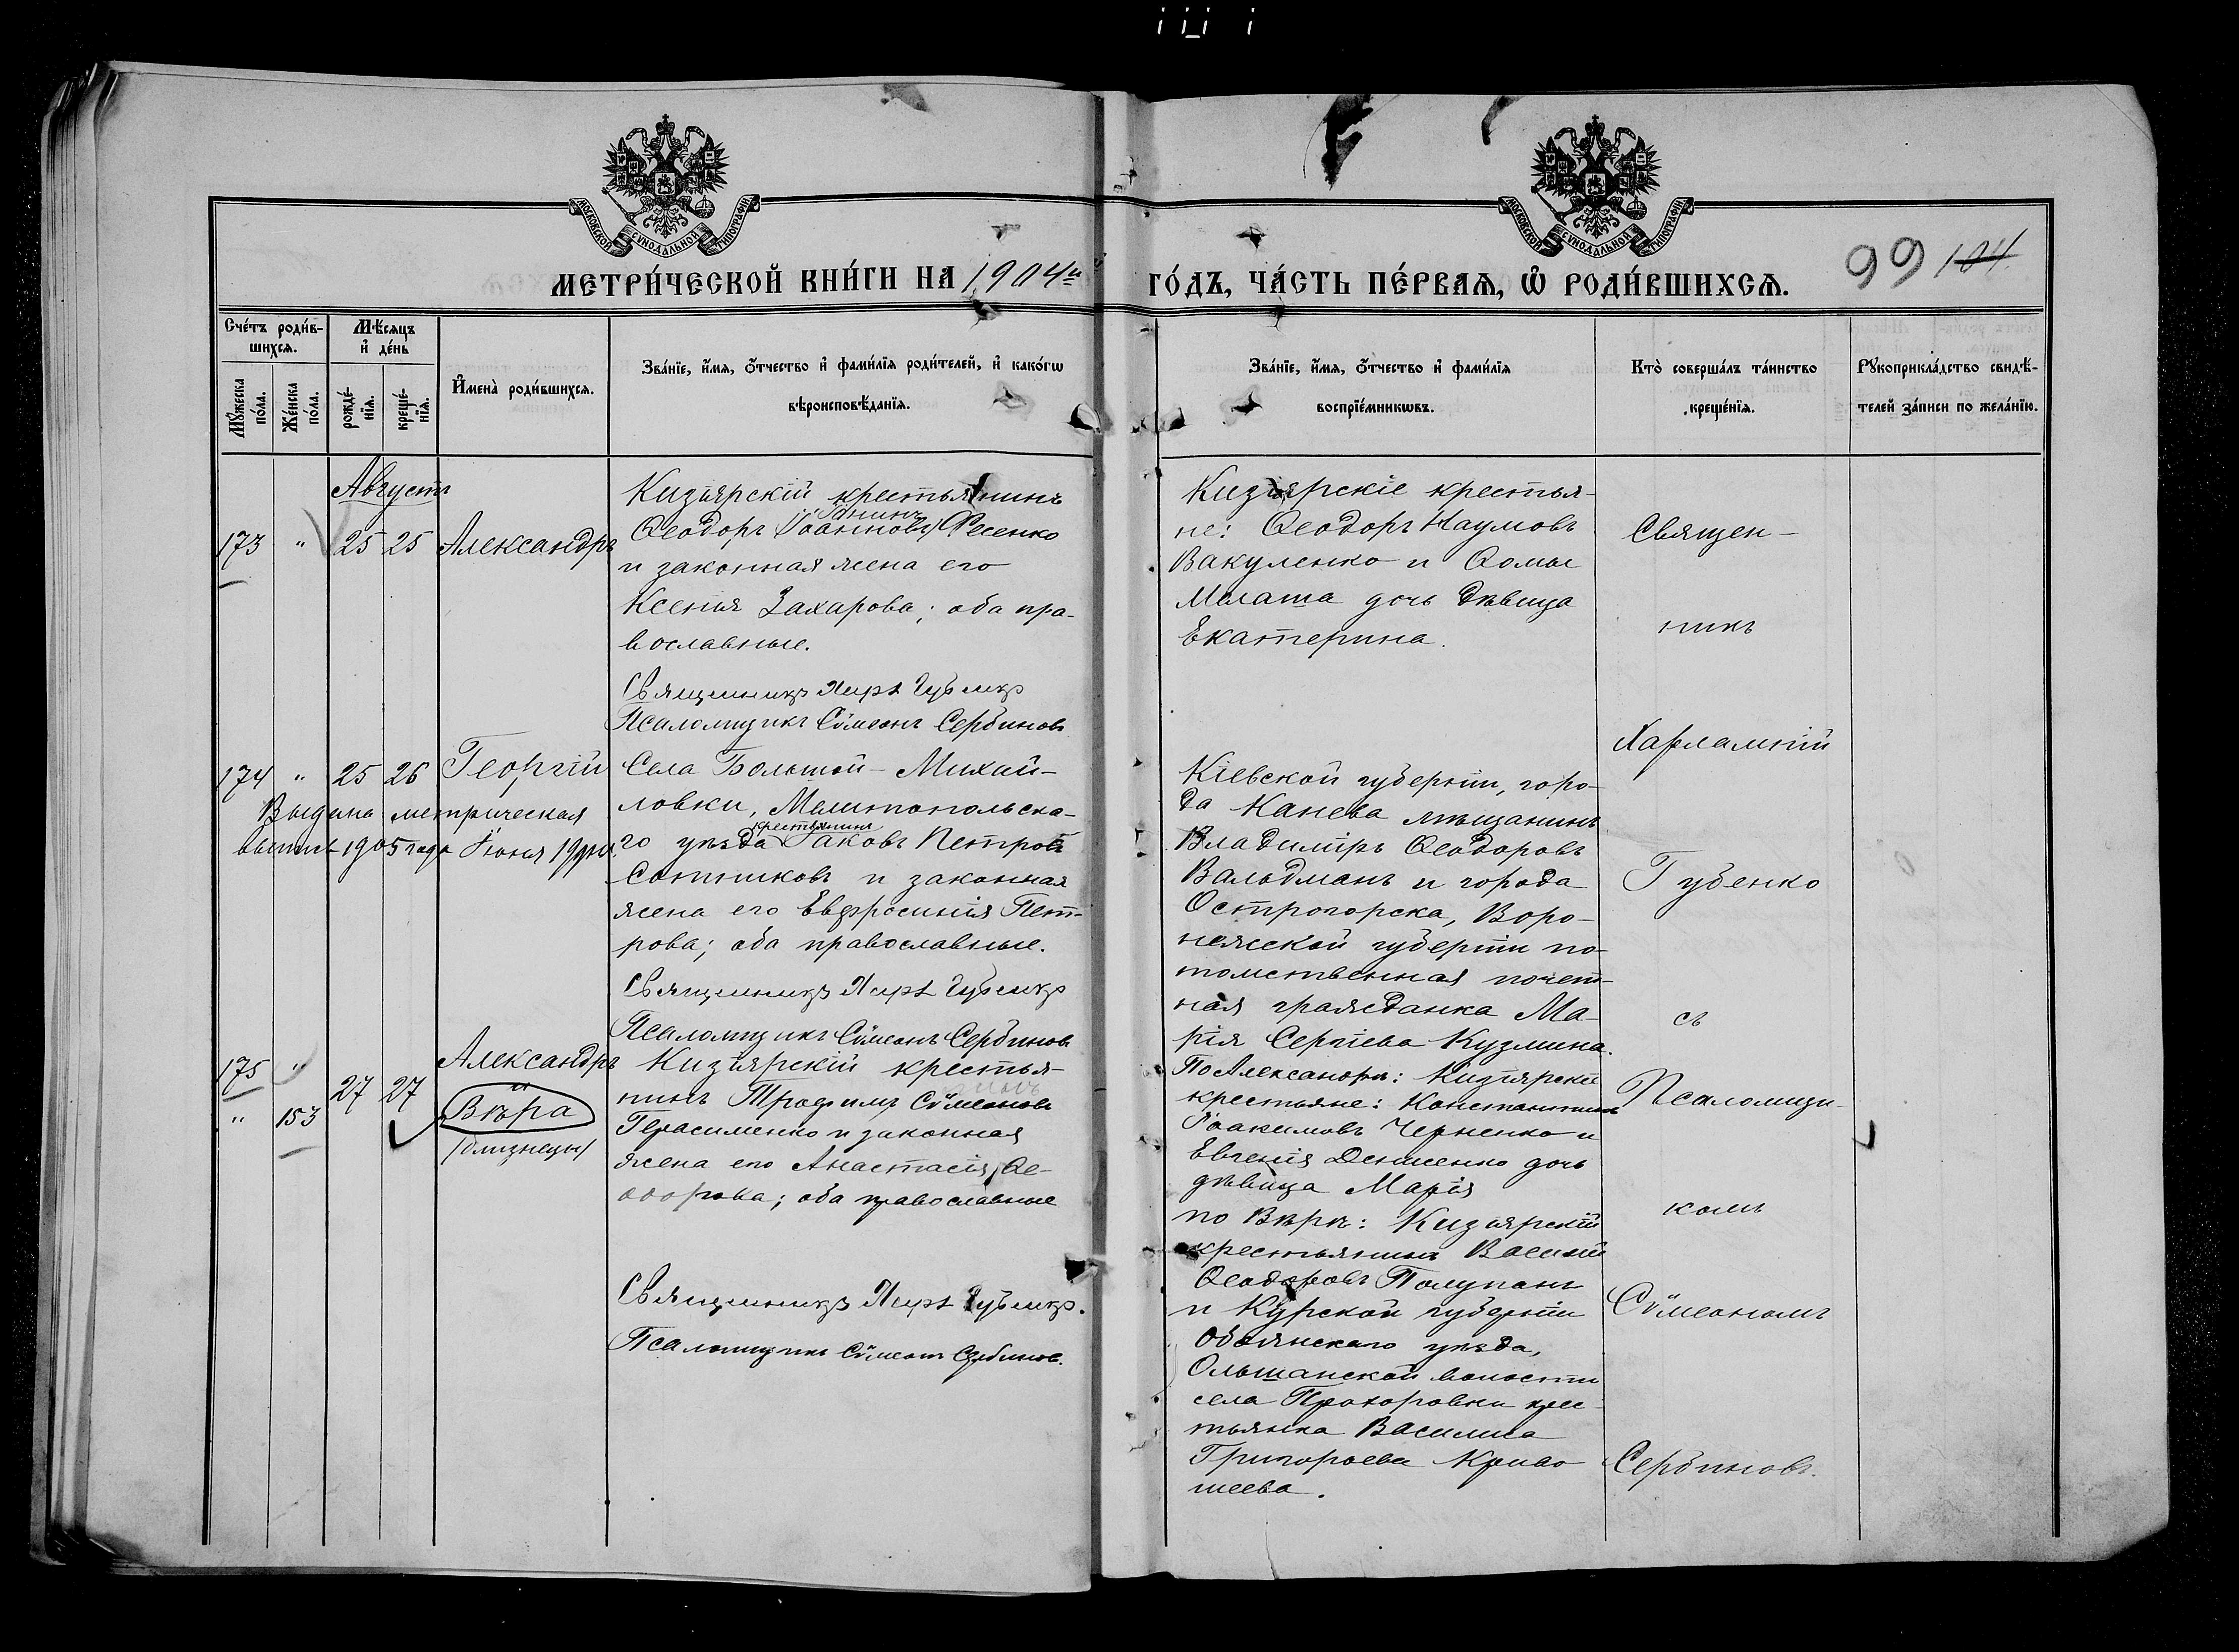 МОСКОВСКОЙ СУНОДАЛЬНОЙ ТИПОГРАФІИ
МОСКОВСКОЙ СУНОДАЛЬНОЙ ТИПОГРАФІИ
МЕТРИ́ЧЕСКОЙ КНИ́ГИ НА 1904й ГО́ДЪ, ЧА́СТЬ ПЕ́РВАѦ, Ѽ РОДИ́ВШИХСѦ.
99 104
Сче́тъ роди́в-
шихсѧ.
Мѣ́сѧцъ
и҆ де́нь
Мꙋ́жеска
по́ла.
Же́нска
по́ла.
рожде́-
нїѧ.
креще́-
нїѧ.
И҆мена̀ роди́вшихсѧ.
Зва́нїе, и҆́мѧ, ѻ҆́тчество и҆ фами́лїѧ роди́телей, и҆ како́гѡ
вѣроисповѣ́данїѧ.
Зва́нїе, и҆́мѧ, ѻ҆́тчество и҆ фами́лїѧ
воспрїе́мникѡвъ.
Кто̀ соверша́лъ та́инство
креще́нїѧ.
Рꙋкоприкла́дство свидѣ́-
телей за́писи по жела́нїю.
Августъ
173 " 25 25 Александръ
Кизіярскій крестьянинъ
Ѳеодоръ Іоанновъ Фесенко
и законная жена его
Ксенія Захарова; оба пра-
вославные.
Священникъ Хар. Губенко
Псаломщикъ Сѵмеонъ Сербиновъ
Кизіярскіе крестья-
не: Ѳеодоръ Наумовъ
Вакуленко и Ѳомы
Мелаша дочь дѣвица
Екатерина.
Священ-
никъ
Харлампій
Губенко
съ
Псаломщи-
комъ
Сѵмеономъ
Сербиновъ.
174 " 25 26 Георгій
Выдана метрическая
выпись 1905 года Іюня 19 дня.
Села Большой-Михай-
ловки, Мелитопольска-
го уѣзда крестьянинъ Іаковъ Петровъ
Сотниковъ и законная
жена его Евфросинія Пет-
рова; оба православные.
Священникъ Хар. Губенко
Псаломщикъ Сѵмеонъ Сербиновъ
Кіевской губерніи, горо-
да Канева мѣщанинъ
Владиміръ Ѳеодоровъ
Вальдманъ и города
Острогорска, Воро-
нежской губерніи по-
томственная почет-
ная гражданка Ма-
рія Сергіева Кузмина.
175 " 27 27 Александръ
и
" 153 Вѣра
/близнецы/
Кизіярскій крестья-
нинъ Трофимъ Сѵмеоновъ
Герасименко и законная
жена его Анастасія Ѳе-
одорова; оба православные
Священникъ Хар. Губенко.
Псаломщикъ Сѵмеонъ Сербиновъ.
По Александрѣ: Кизіярскіе
крестьяне: Константинъ
Іоакимовъ Черненко и
Евгенія Денисенко дочь
дѣвица Марія
по Вѣрѣ: Кизіярскій
крестьянинъ Василій
Ѳеодоровъ Полупанъ
и Курской губерніи
Обоянскаго уѣзда,
Ольшанской волости
села Прохоровки крес-
тьянка Василиса
Григорьева Криво
шеева.